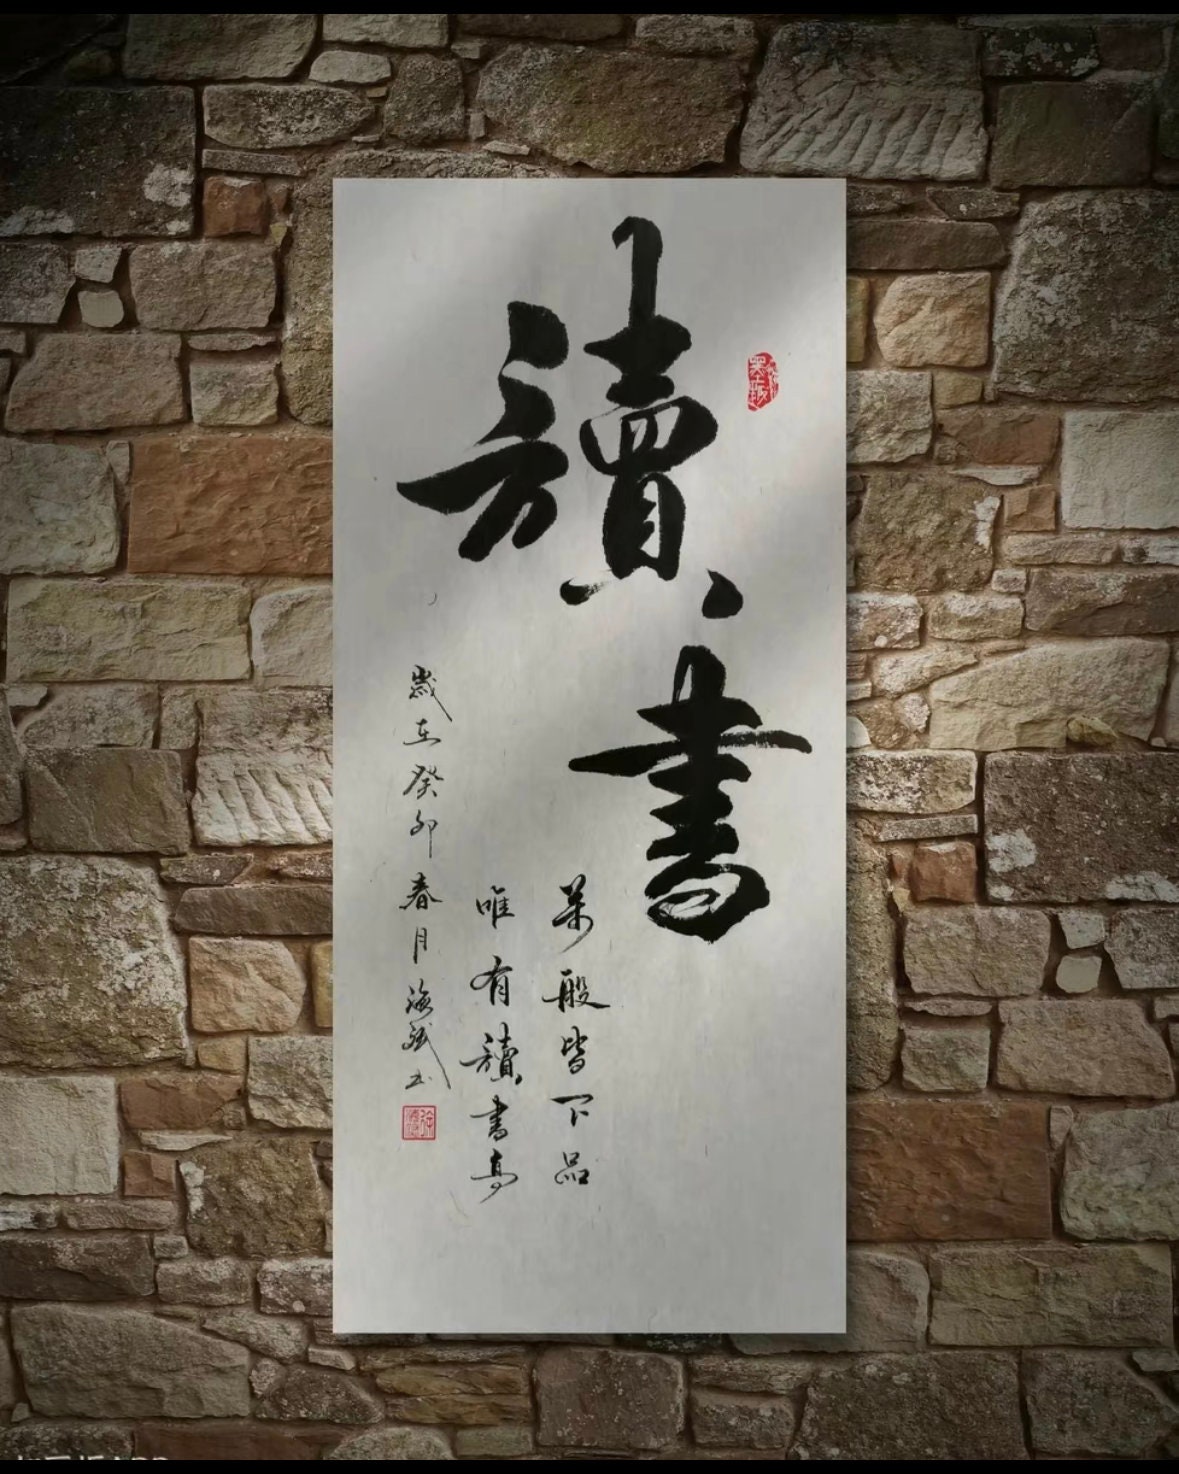 讀書
萬般皆下品
唯有讀書高
歲在癸卯春月海斌书